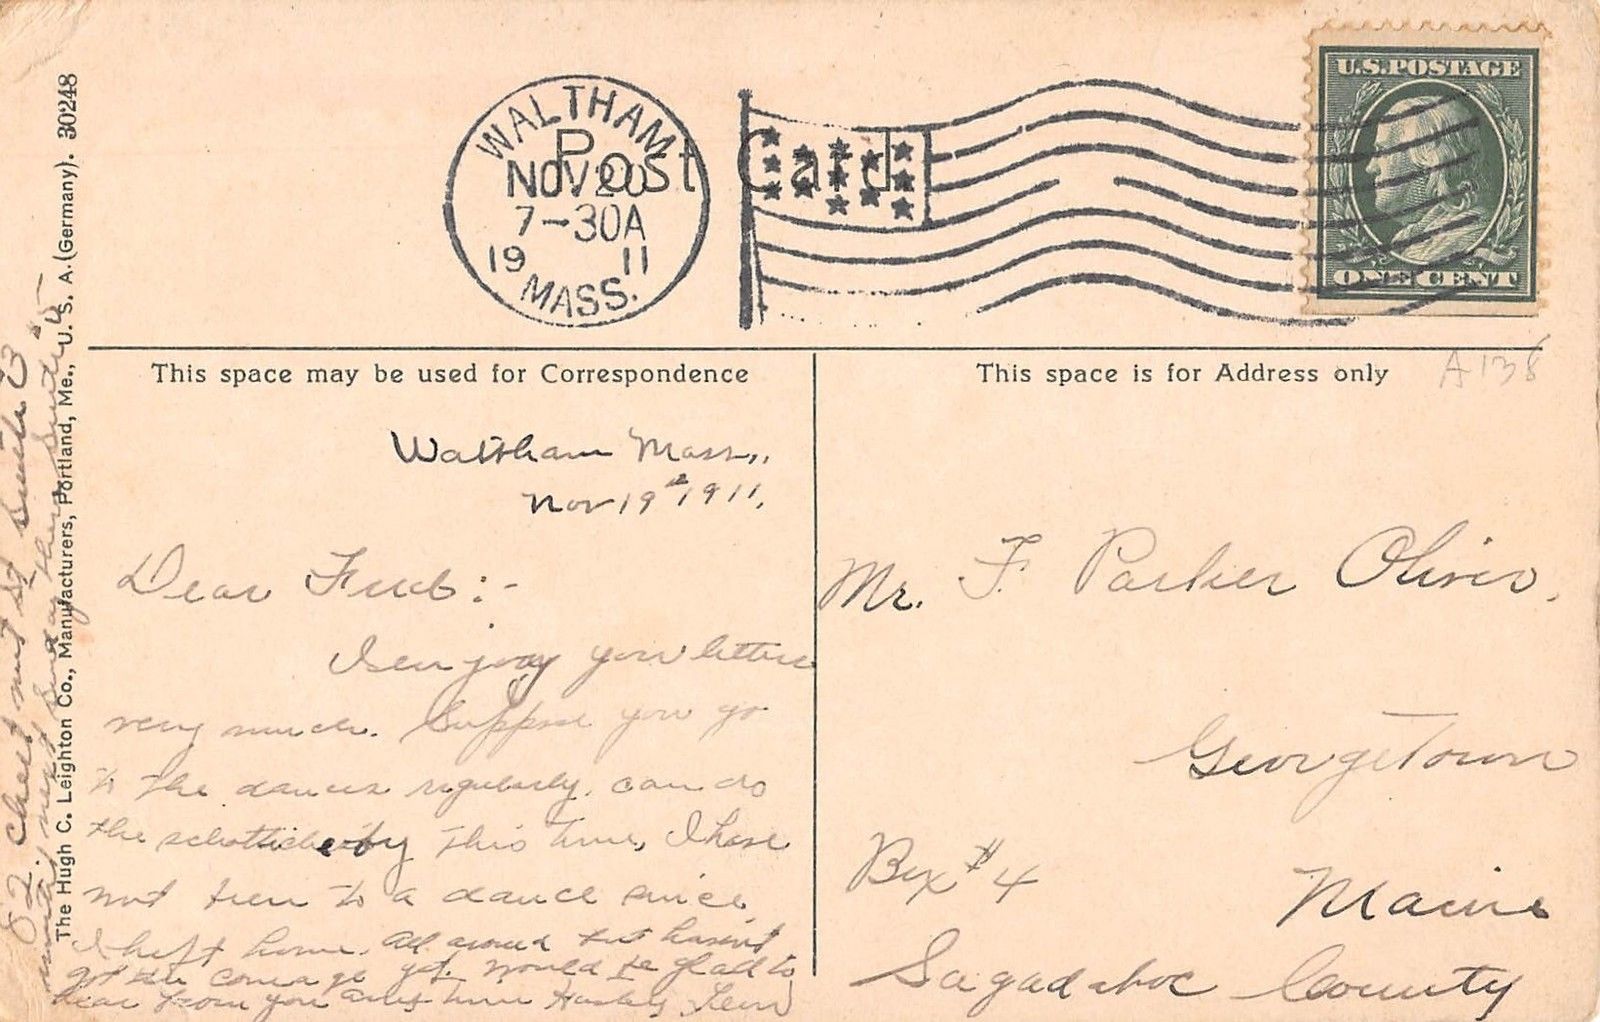 U.S.POSTAGE
ONE CENT
WALTHAM
NOV 20
7-30A
19 11
MASS.
Post Card
This space may be used for Correspondence
This space is for Address only
A138
Waltham Mass.,
Nov 19 1911.
Dear Fred:-
I enjoy your letters
very much. Suppose you go
to the dances regularly, can do
the schottische by this time, I have
not been to a dance since
I left home. All around but hasn't
got the courage yet. Would be glad to
hear from you any time
Mr. F. Parker Oliver,
Georgetown
Box #4
Maine
Sagadahoc County
82 Chestnut St Suite
next Sunday there Suite
The Hugh C. Leighton Co., Manufacturers, Portland, Me., U. S. A. (Germany). 30248